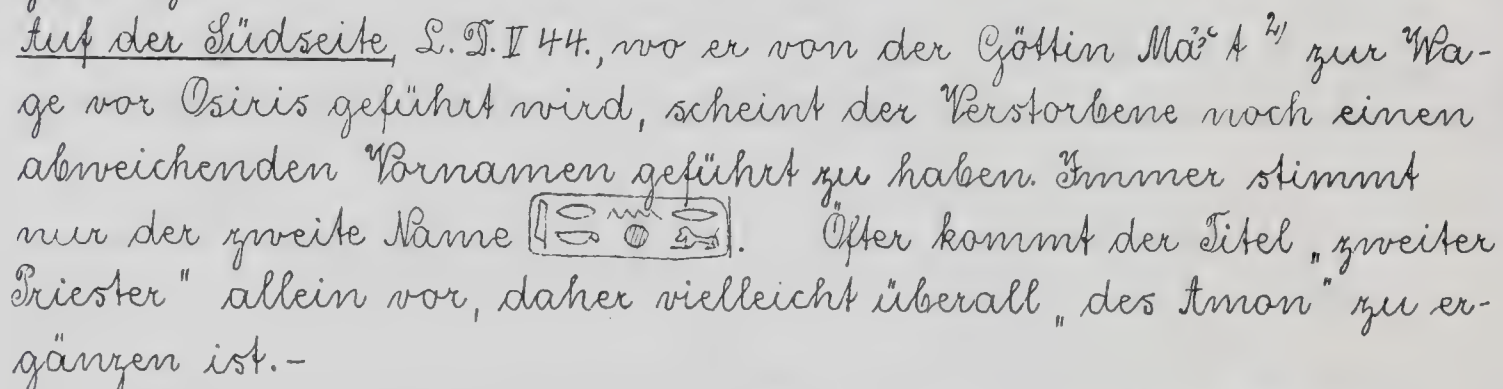 Auf der Südseite, L. D. II 44., wo er von der Göttin Máꜣꜥt 2) zur Wa-
ge vor Osiris geführt wird, scheint der Verstorbene noch einen
abweichenden Vornamen geführt zu haben. Immer stimmt
nur der zweite Name . Öfter kommt der Titel „zweiter
Priester" allein vor, daher vielleicht überall „des Amon" zu er-
gänzen ist.-